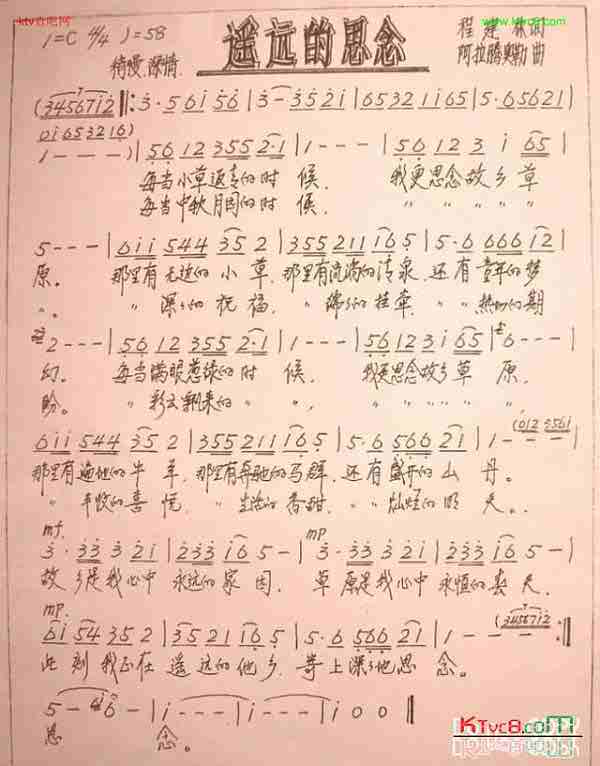 ktv歌吧网
www.ktvc8.com
1=C 4/4 ♩=58
遥远的思念
程建林词
阿拉腾奥勒曲
稍慢 深情
(3456712‖:3·5 61 56|3-3521|65321165|5·65621|
0165321 6
1---)|56 12 355 2·1|1---|56 12 3 1 65|
每当小草返青的时候, 我更思念故乡草
每当中秋月圆的时候, 〃 〃 〃 〃 〃
5---|611 544 35 2|355 211 16 5|5·6 666 12|
原。 那里有无边的小草, 那里有流淌的清泉, 还有童年的梦
〃 深深的祝福, 〃 绵绵的牵 〃 热切的期
2---|56 12 355 2·1|1---|56 12 3 1 65|6---|
幻。 每当满眼葱绿的时候, 我更思念故乡草原,
盼。 〃 彩云飘来的 〃 〃, 〃 〃 〃 〃 〃 〃
611 544 35 2|355 211 16 5|5·6 566 21|1---
(012 5561
那里有遍地的牛羊, 那里有奔驰的马群, 还有盛开的山丹。
〃 丰收的喜悦, 〃 生活的香甜, 〃 灿烂的明天。
mf. mp
3·33 3 21|233 16 5-|3·33 3 21|233 16 5-|
故乡是我心中永远的家园, 草原是我心中永恒的春天,
mp.
61 54 35 2|35 21 16 5|5·6 566 21|1---:‖
(3456712
此刻我正在遥远的他乡, 寄上深深地思念。
5-6-|1---|1---|1 0 0‖
思念。
KTvc8.com